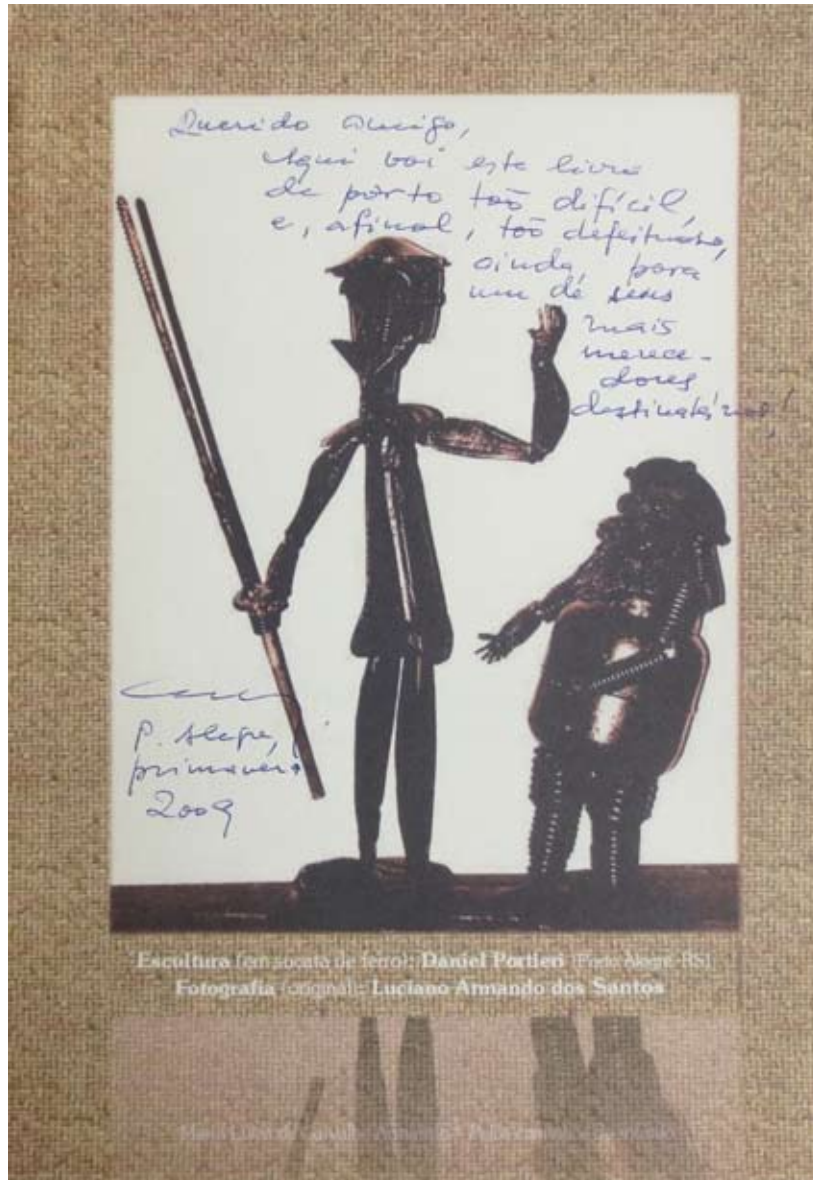 Querido amigo,
Aqui vai este livro
de parto tão difícil,
e, afinal, tão defeituoso,
ainda, para
um de seus
mais
merece-
dores
destinatários!
P. Alegre,
primavera
2009
Escultura (em sucata de ferro): Daniel Portieri (Porto Alegre-RS)
Fotografia (original): Luciano Armando dos Santos